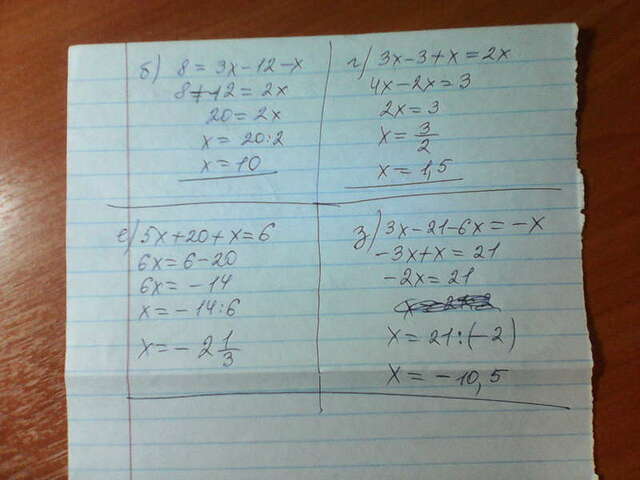 б) 8 = 3x - 12 - x
8 + 12 = 2x
20 = 2x
x = 20:2
x = 10
г) 3x - 3 + x = 2x
4x - 2x = 3
2x = 3
x = 3/2
x = 1,5
е) 5x + 20 + x = 6
6x = 6 - 20
6x = - 14
x = - 14:6
x = - 2 1/3
з) 3x - 21 - 6x = - x
- 3x + x = 21
- 2x = 21
x = 21:(-2)
x = - 10,5